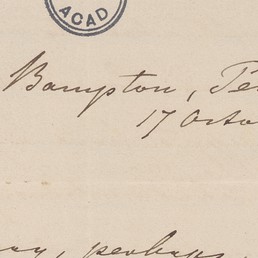 ACAD
Bampton,
17 Octo
perhaps